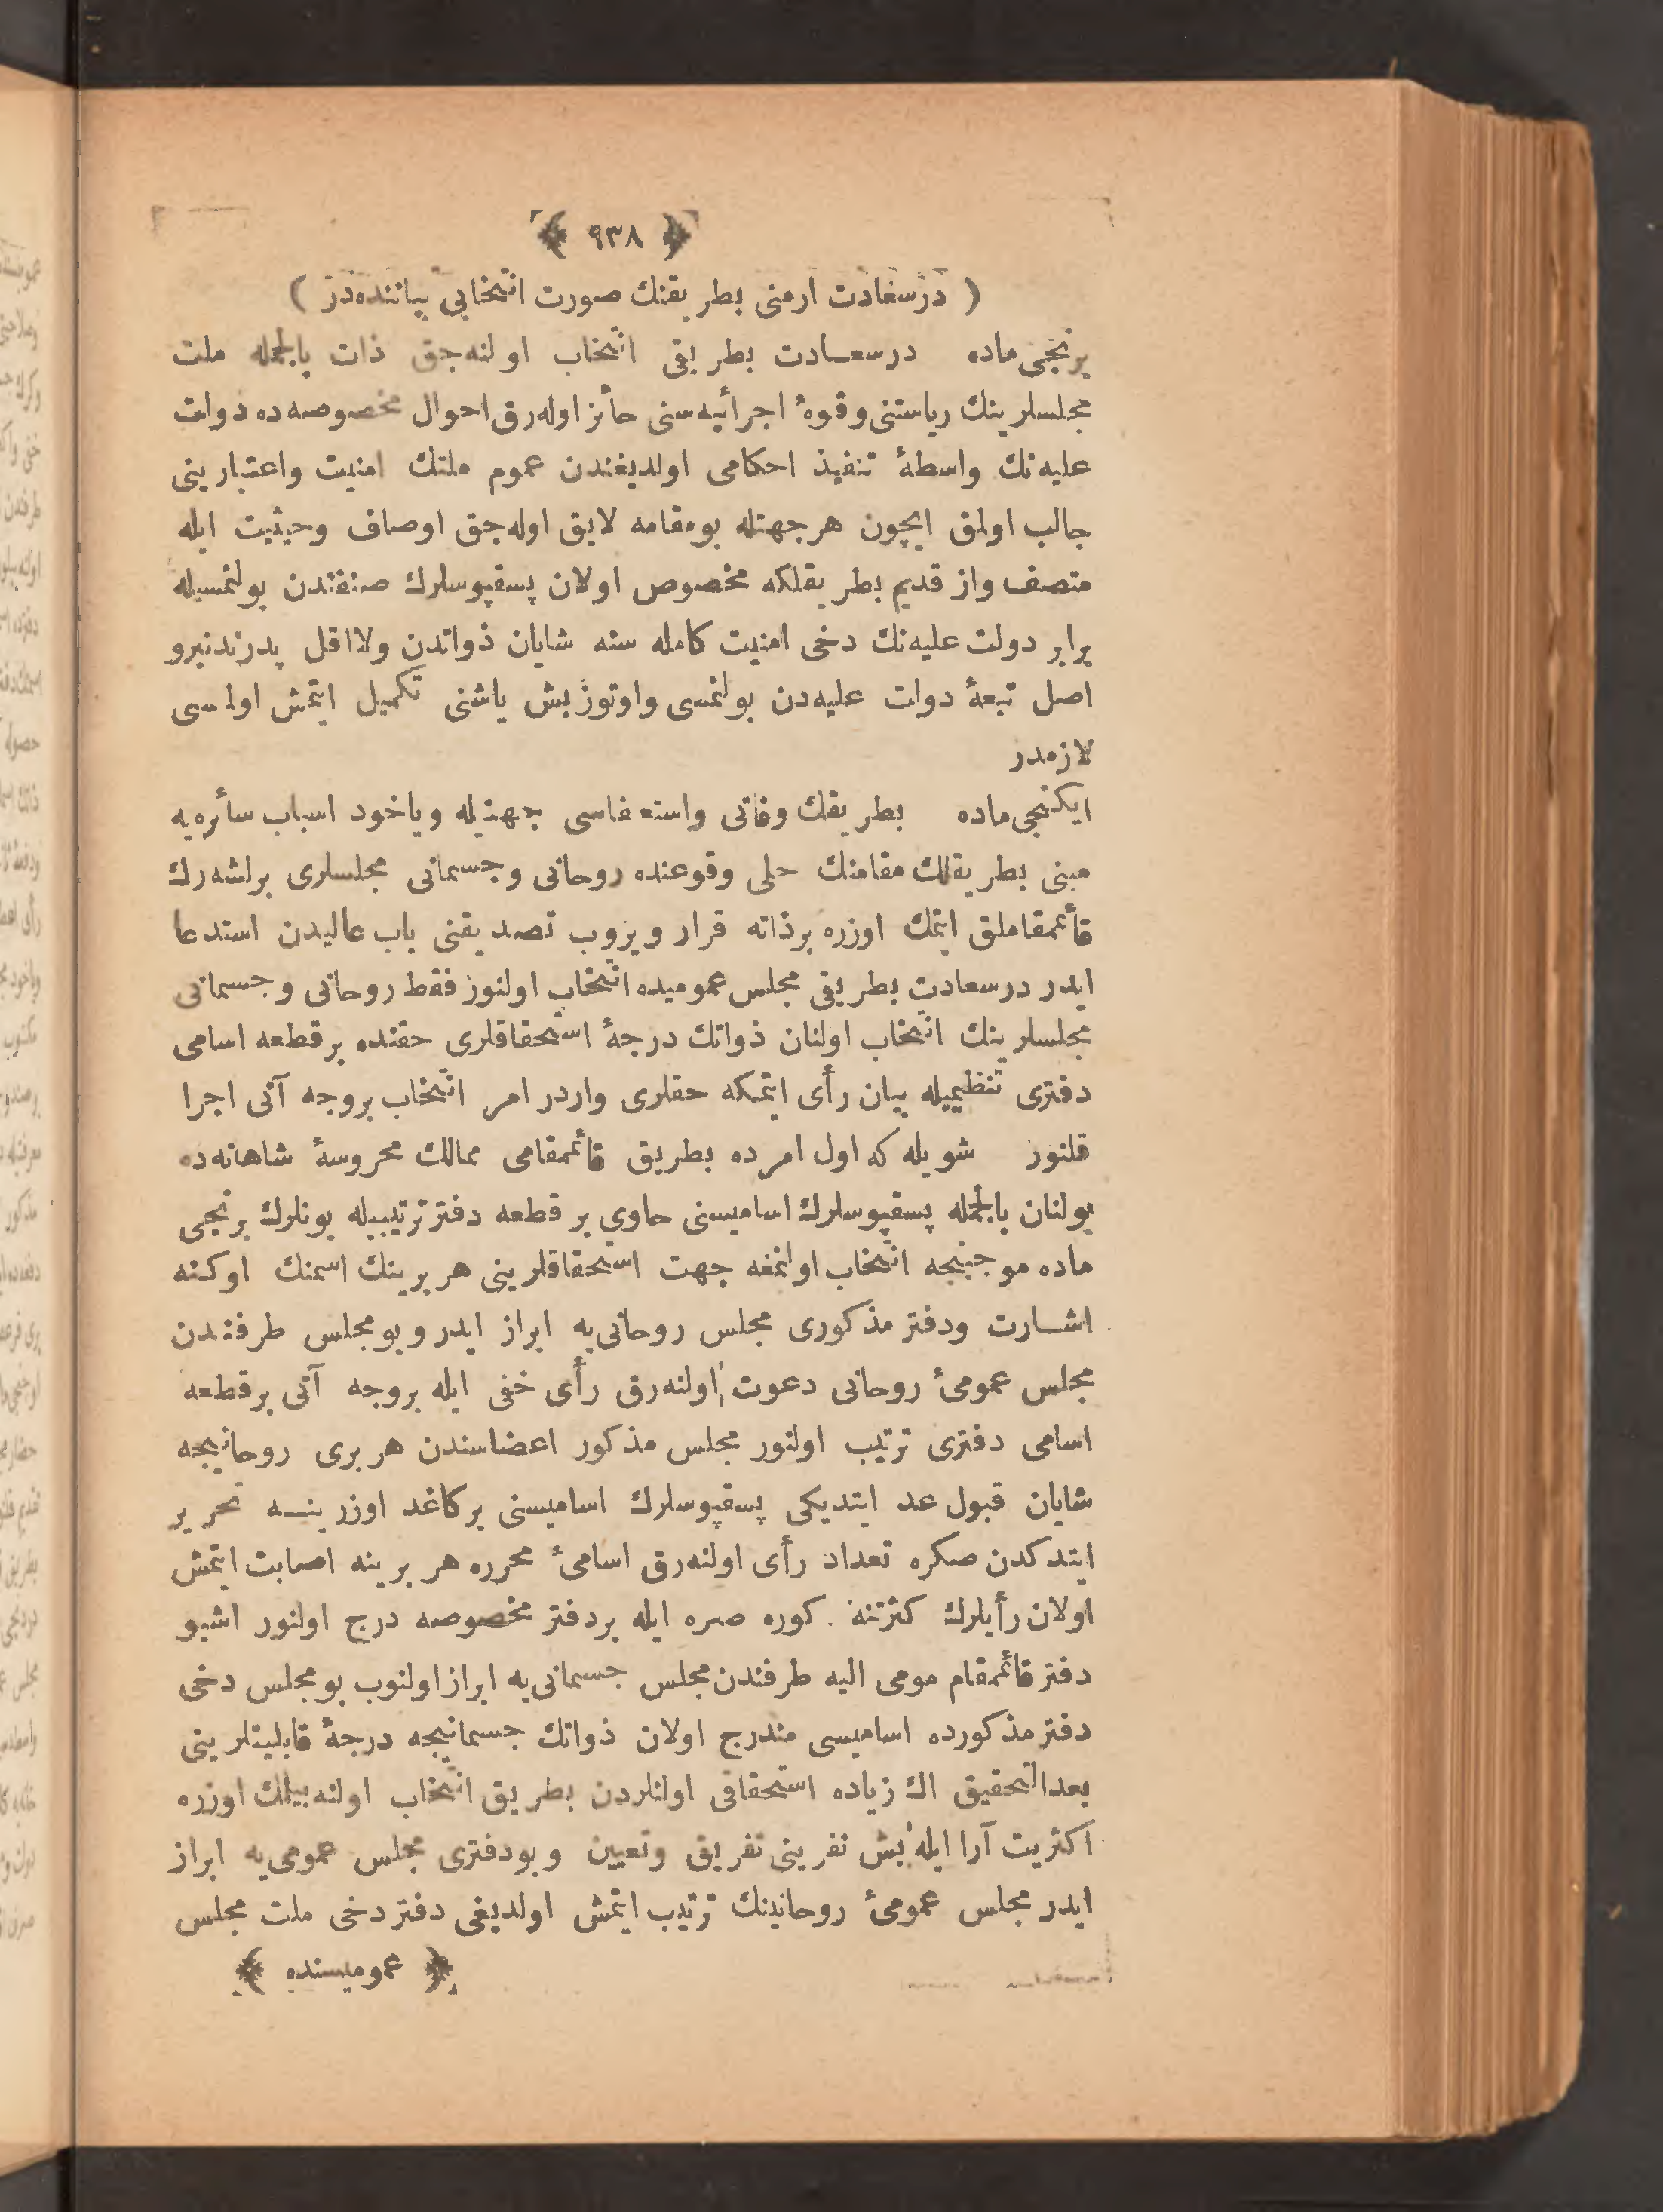 ﴿ ٩٣٨ ﴾
( درسعادت ارمنى بطريقنك صورت انتخابى بياننده‌در )
برنجى ماده درسعادت بطريقى انتخاب اولنه‌جق ذات بالجمله ملت
مجلسلرينك رياستنى وقوهٔ اجرائيه‌سنى حأئز اوله‌رق احوال مخصوصه‌ده دولت
عليه‌نك واسطهٔ تنفيذ احكامى اولديغندن عموم ملتك امنيت واعتبارينى
جالب اولمق ايچون هر جهتله بو مقامه لايق اوله‌جق اوصاف وحيثيت ايله
متصف واز قديم بطريقلكه مخصوص اولان پسقپوسلرك صنفندن بولنمسيله
برابر دولت عليه‌نك دخى امنيت كامله سنه شايان ذواتدن ولااقل پدرندنبرو
اصل تبعهٔ دولت عليه‌دن بولنمسى واوتوز بش ياشنى تكميل ايتمش اولمسى
لازمدر
ايكنجى ماده بطريقك وفاتى واستعفاسى جهتيله وياخود اسباب سأئره‌يه
مبنى بطريقلك مقامنك حلى وقوعنده روحانى وجسمانى مجلسلرى برلشه‌رك
قأئممقاملق ايتمك اوزره برذاته قرار ويروب تصديقنى باب عاليدن استدعا
ايدر درسعادت بطريقى مجلس عموميده انتخاب اولنور فقط روحانى وجسمانى
مجلسلرينك انتخاب اولنان ذواتك درجهٔ استحقاقلرى حقنده برقطعه اسامى
دفترى تنظيميله بيان رأى ايتمكه حقلرى واردر امر انتخاب بروجه آتى اجرا
قلنور شويله كه اول امرده بطريق قأئممقامى ممالك محروسهٔ شاهانه‌ده
بولنان بالجمله پسقپوسلرك اساميسنى حاوى برقطعه دفتر ترتيبيله بونلرك برنجى
ماده موجبنجه انتخاب اولنمغه جهت استحقاقلرينى هر برينك اسمنك اوكنه
اشارت ودفتر مذكورى مجلس روحانى‌يه ابراز ايدر وبو مجلس طرفندن
مجلس عمومىٔ روحانى دعوت اولنه‌رق رأى خفى ايله بروجه آتى برقطعه
اسامى دفترى ترتيب اولنور مجلس مذكور اعضاسندن هر برى روحانيجه
شايان قبول عد ايتديكى پسقپوسلرك اساميسنى بركاغد اوزرينه تحرير
ايتدكدن صكره تعداد رأى اولنه‌رق اسامىٔ محرره هر برينه اصابت ايتمش
اولان رأيلرك كثرتنه كوره صره ايله بردفتر مخصوصه درج اولنور اشبو
دفتر قأئممقام مومى اليه طرفندن مجلس جسمانى‌يه ابراز اولنوب بو مجلس دخى
دفتر مذكورده اساميسى مندرج اولان ذواتك جسمانيجه درجهٔ قابليتلرينى
بعدالتحقيق اك زياده استحقاقى اولنلردن بطريق انتخاب اولنه‌بيلك اوزره
اكثريت آرا ايله بش نفرينى تفريق وتعيين وبودفترى مجلس عمومى‌يه ابراز
ايدر مجلس عمومىٔ روحانينك ترتيب ايتمش اولديغى دفتر دخى ملت مجلس
﴿ عموميسنده ﴾